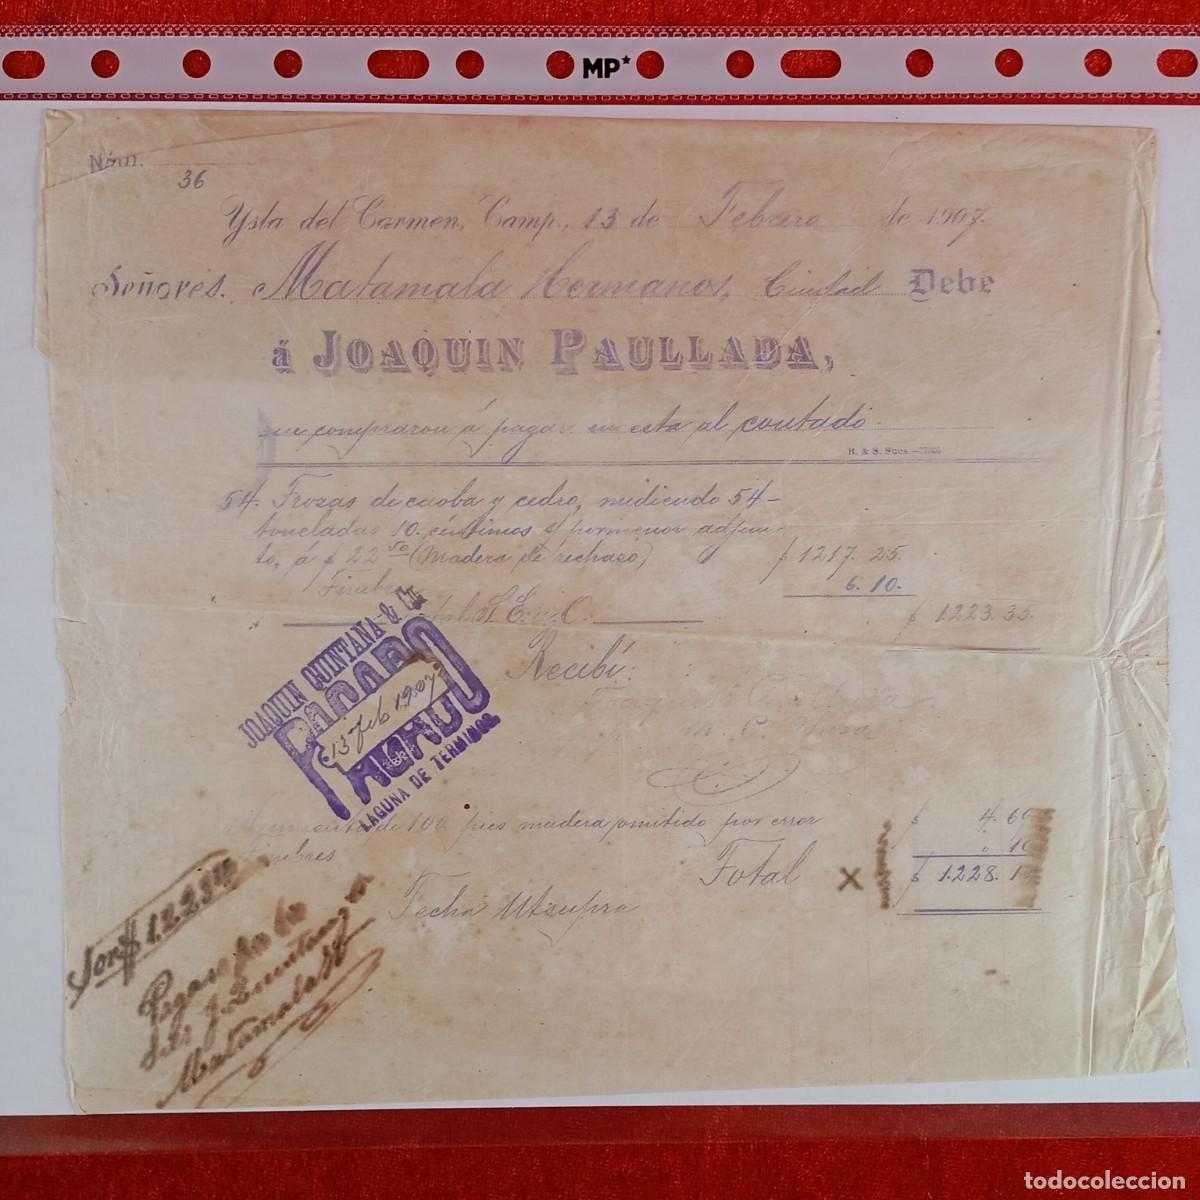 MP*
Núm.
36
Ysla del Carmen, Camp., 13 de Febrero de 1907.
Señores. Matamala Hermanos, Ciudad Debe
á JOAQUIN PAULLADA,
que compraron á pagar en esta al contado
H. & S. Sucs.
54 Trozas de caoba y cedro, midiendo 54
toneladas 10 céntimos s/ pormenor adjun-
to, á $ 22 50 (Madera de rechazo) $ 1217. 25
Timbres 6. 10.
S. E. ú O. $ 1223. 35.
JOAQUIN QUINTANA & Ca
PAGADO
Recibí:
13 feb 1907
LAGUNA DE TERMINOS.
Aumento de 100 pies madera omitido por error $ 4. 60
Timbres
Total X $ 1.228. 1
Fecha Utsupra
Son $ 1223
Pagase por los
Sres J. Quintana
Matamala
todocoleccion